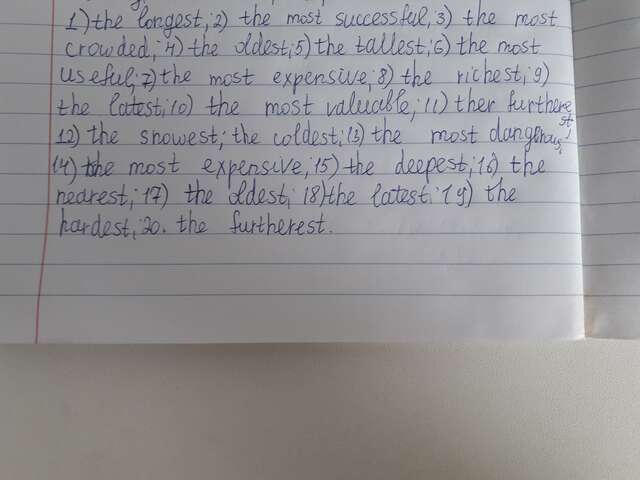 1) the longest; 2) the most successful; 3) the most
crowded; 4) the oldest; 5) the tallest; 6) the most
useful; 7) the most expensive; 8) the richest; 9)
the latest; 10) the most valuable; 11) ther furtherest;
12) the snowest; the coldest; 13) the most dangerous;
14) the most expensive; 15) the deepest; 16) the
nearest; 17) the oldest; 18) the latest; 19) the
hardest; 20. the furtherest.